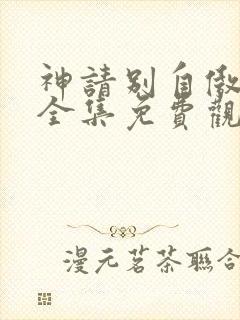 神請別自傲
全集免費觀
漫元茗茶聯合